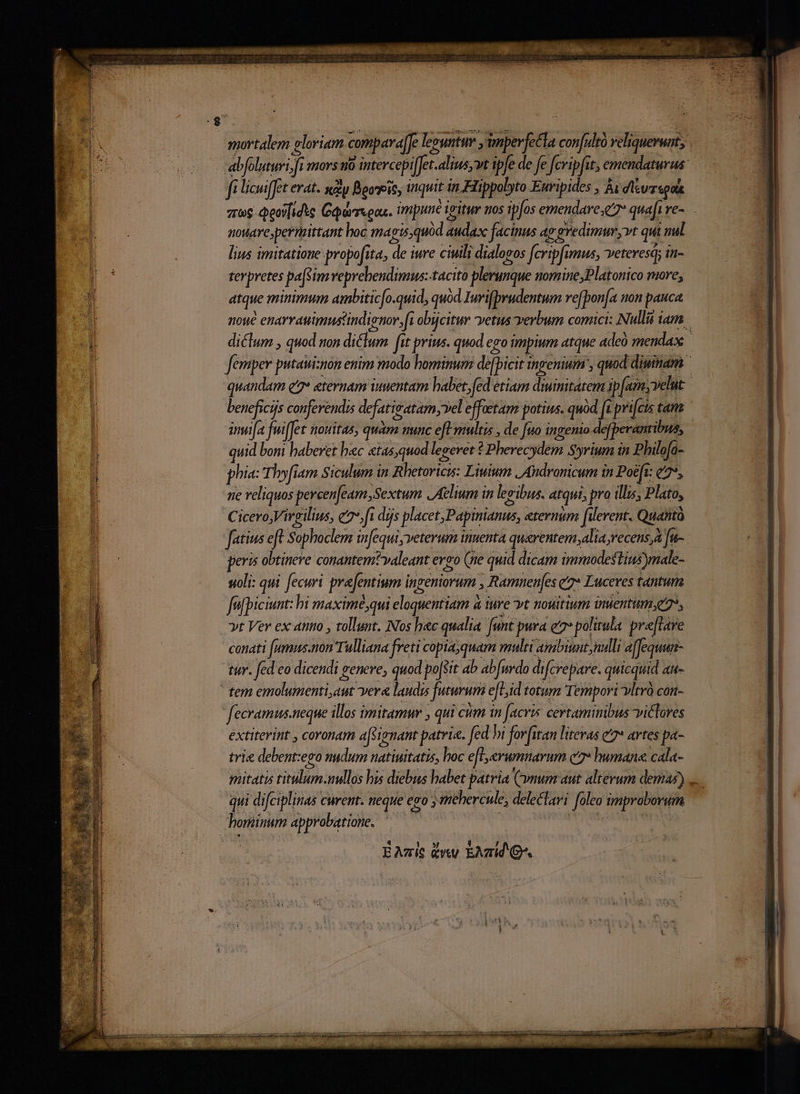 8
mortalem gloriam comparasse leguntur, imperfecta consultò reliquerunt,
absoluturi, si mors nō intercepisset. alius, vt ipse de se scripsit, emendaturus
si licuisset erat. κἀν βροτοῖς, inquit in Hippolyto Euripides, Αἱ δεύτεραί
πως φροντίδες σοφώτεραι. impunè igitur nos ipsos emendare, & quasi re-
nouare, permittant hoc magis, quòd audax facinus aggredimur, vt qui nul
lius imitatione proposita, de iure ciuili dialogos scripsimus, veteresq; in-
terpretes passim reprehendimus: tacito plerunque nomine, Platonico more,
atque minimum ambitioso. quid, quòd Iurisprudentum responsa non pauca
nouè enarrauimus? indignor, si obijcitur vetus verbum comici: Nullū iam
dictum, quod non dictum sit prius. quod ego impium atque adeò mendax
semper putaui: non enim modo hominum despicit ingenium, quod diuinam
quandam & æternam inuentam habet, sed etiam diuinitatem ipsam, velut
beneficijs conferendis defatigatam, vel effœtam potius. quòd si priscis tam
inuisa fuisset nouitas, quàm nunc est multis, de suo ingenio desperantibus,
quid boni haberet hæc ætas, quod legeret? Pherecydem Syrium in Philoso-
phia: Thysiam Siculum in Rhetoricis: Liuium Andronicum in Poësi: &,
ne reliquos percenseam, Sextum Aelium in legibus. atqui, pro illis, Plato,
Cicero, Virgilius, &, si dijs placet, Papinianus, æternùm silerent. Quantò
satius est Sophoclem insequi, veterum inuenta quærentem, alia, recens, à su-
peris obtinere conantem? valeant ergo (ne quid dicam immodestius) male-
uoli: qui securi præsentium ingeniorum, Ramnenses & Luceres tantum
suspiciunt: hi maximè, qui eloquentiam à iure vt nouitium inuentum, &,
vt Ver ex anno, tollunt. Nos hæc qualia sunt pura & politula præstare
conati sumus. non Tulliana freti copia, quam multi ambiunt, nulli assequun-
tur. sed eo dicendi genere, quod possit ab absurdo discrepare. quicquid au-
tem emolumenti, aut veræ laudis futurum est, id totum Tempori vltrò con-
secramus. neque illos imitamur, qui cùm in sacris certaminibus victores
extiterint, coronam assignant patriæ. sed hi forsitan literas & artes pa-
triæ debent: ego nudum natiuitatis, hoc est, ærumnarum & humanæ cala-
mitatis titulum. nullos his diebus habet patria (vnum aut alterum demas)
qui disciplinas curent. neque ego, mehercule, delectari soleo improborum
hominum approbatione.
Ελπὶς ἄνευ ἐλπίδος.